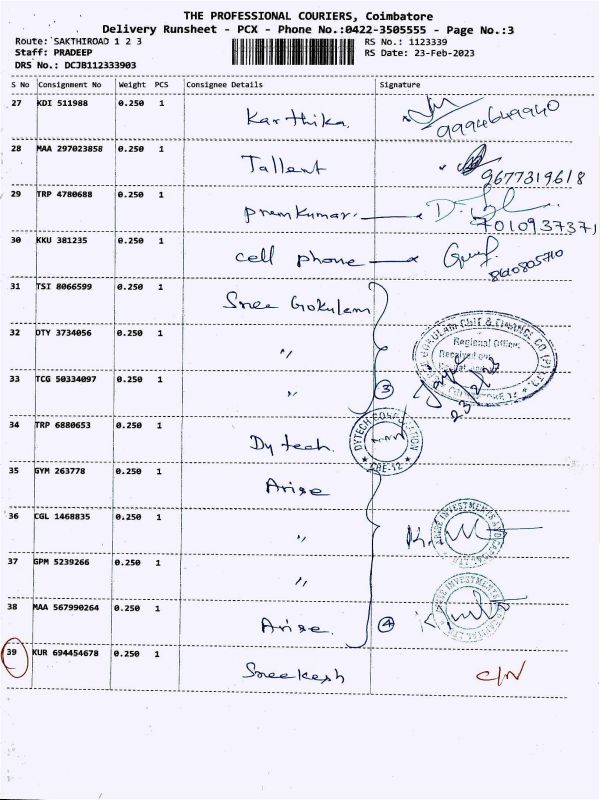 THE PROFESSIONAL COURIERS, Coimbatore
Delivery Runsheet - PCX - Phone No.:0422-3505555 - Page No.:3
Route: SAKTHIROAD 1 2 3 RS No.: 1123339
Staff: PRADEEP RS Date: 23-Feb-2023
DRS No.: DCJB112333903
S No Consignment No Weight PCS Consignee Details Signature
27 KDI 511988 0.250 1 Karthika 9994649940
28 MAA 297023858 0.250 1 Tallent 9677319618
29 TRP 4780688 0.250 1 premkumar. 7010937371
30 KKU 381235 0.250 1 cell phone
31 TSI 8066599 0.250 1 Sree Gokulam
32 DTY 3734056 0.250 1 "
Regional Office
33 TCG 50334097 0.250 1 " 3
34 TRP 6880653 0.250 1 Dy tech. DYTECH CBE-12
35 GYM 263778 0.250 1 Arise
36 CGL 1468835 0.250 1 " INVESTMENTS
37 GPM 5239266 0.250 1 "
38 MAA 567990264 0.250 1 Arise. 4 INVESTMENTS
39 KUR 694454678 0.250 1 Sreekesh C/N